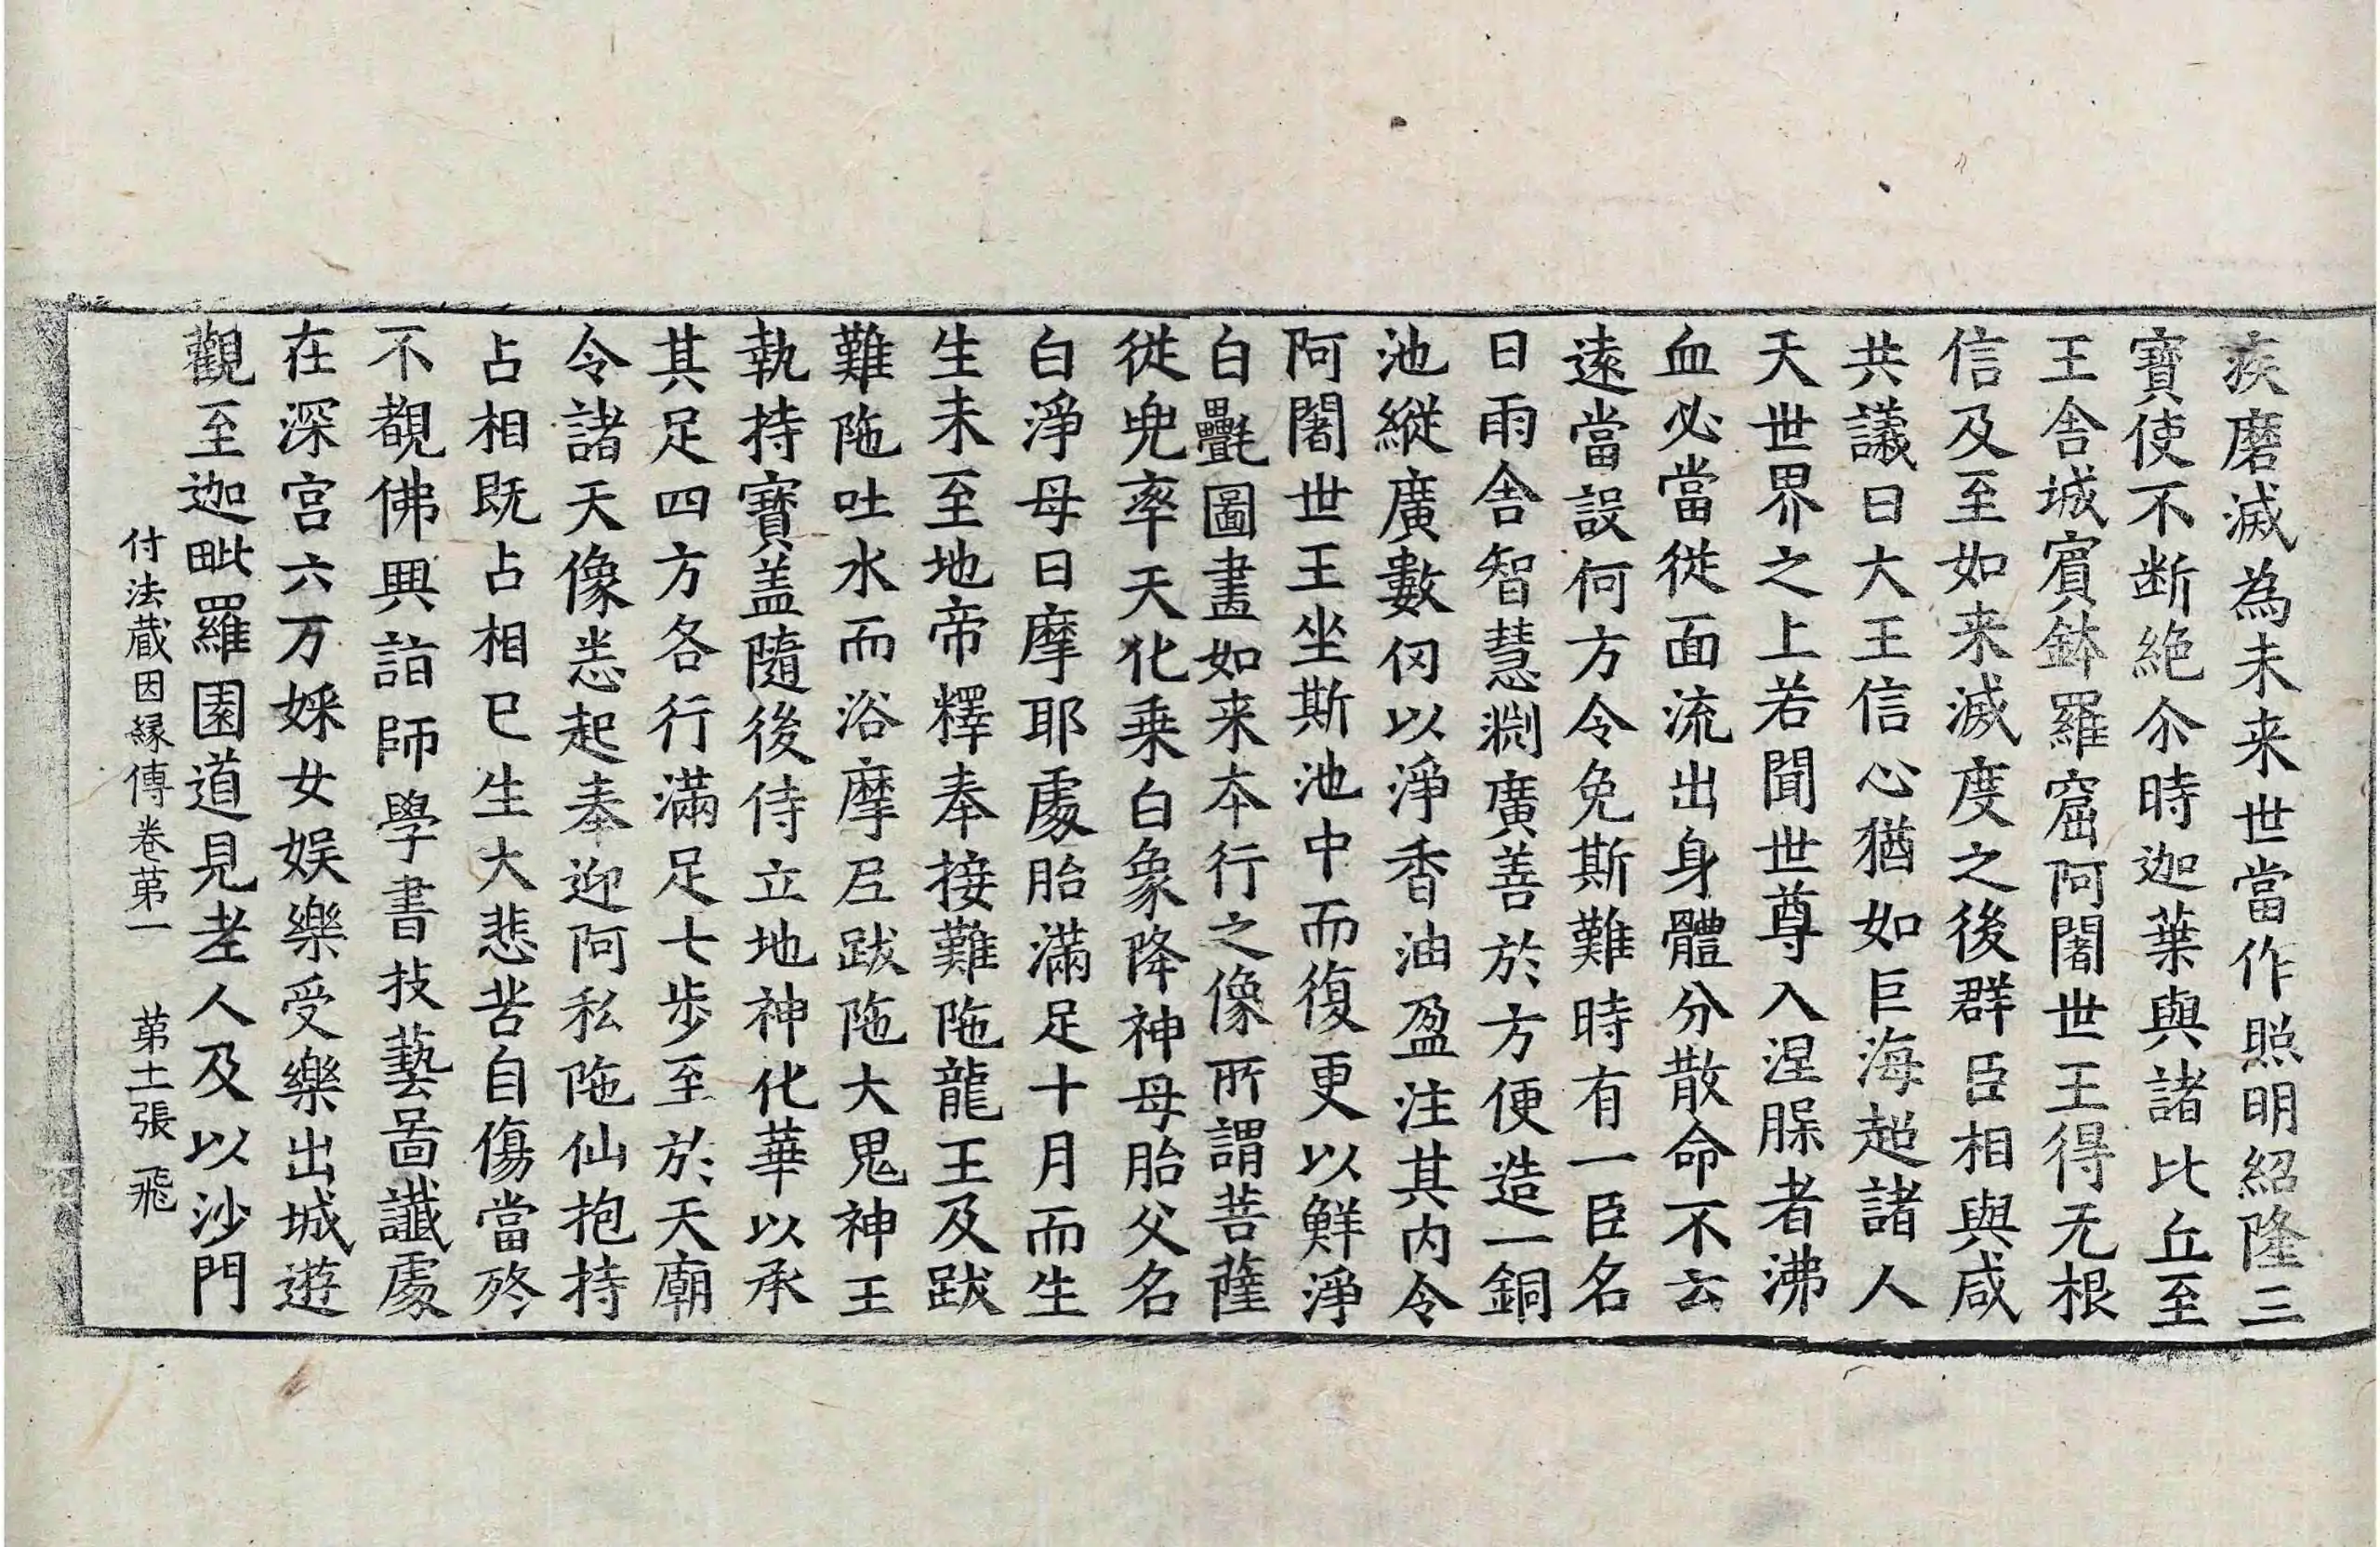 疾磨滅為未来世當作照明紹隆三
寶使不断絶尒時迦葉與諸比丘至
王舎城賓鉢羅窟阿闍世王得无根
信及至如来滅度之後群臣相與咸
共議曰大王信心猶如巨海超諸人
天世界之上若聞世尊入涅槃者沸
血必當從面流出身體分散命不云
遠當設何方令免斯難時有一臣名
曰雨舎智慧渊廣善於方便造一銅
池縱廣數仞以淨香油盈注其内令
阿闍世王坐斯池中而復更以鮮淨
白㲲圖畫如来本行之像所謂菩薩
從兜率天化乗白象降神母胎父名
白淨母曰摩耶處胎滿足十月而生
生未至地帝釋奉接難陁龍王及跋
難陁吐水而浴摩尼跋陁大鬼神王
執持寶盖隨後侍立地神化華以承
其足四方各行滿足七歩至於天廟
令諸天像悉起奉迎阿私陁仙抱持
占相既占相已生大悲苦自傷當終
不覩佛興詣師學書技藝啚讖處
在深宫六万婇女娯樂受樂出城遊
觀至迦毗羅園道見老人及以沙門
付法蔵因縁傳卷苐一　苐十二張　飛